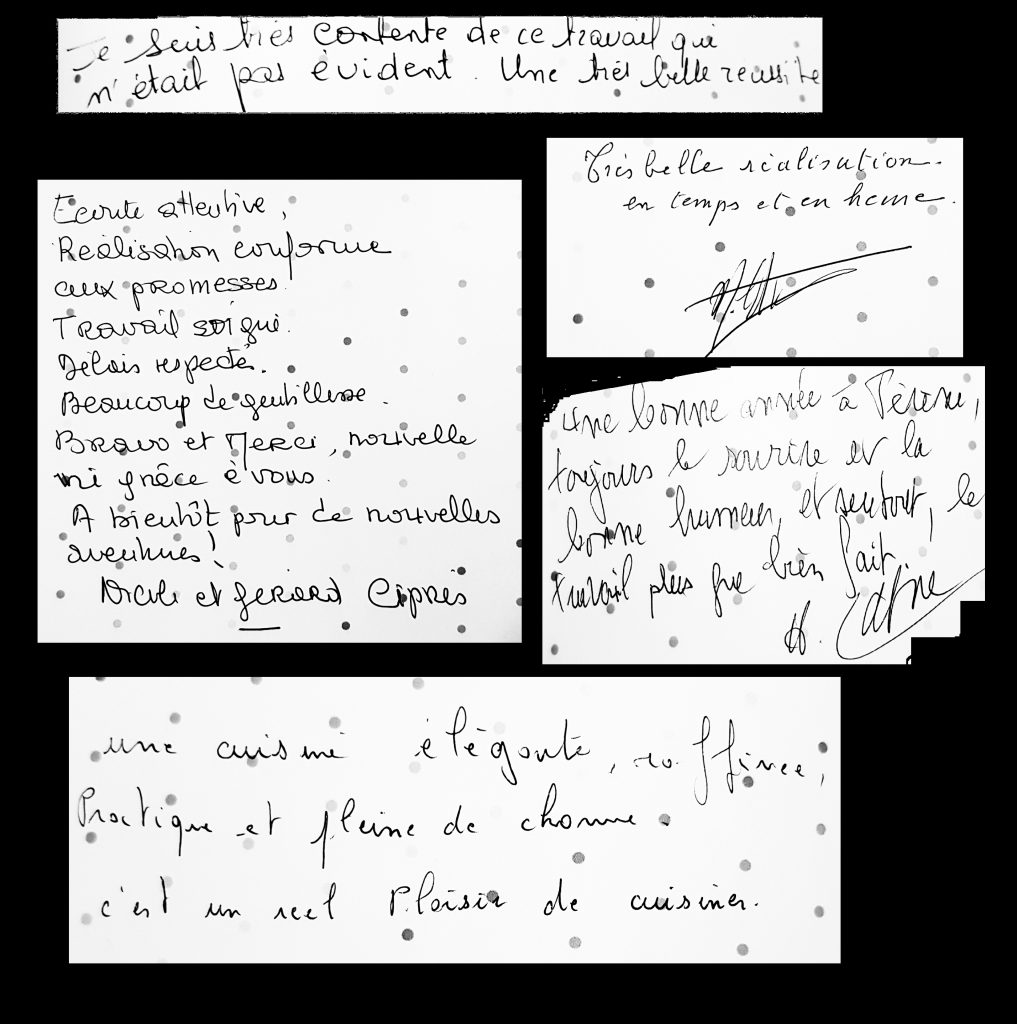 Je suis très contente de ce travail qui
n'était pas évident. Une très belle reussite
Très belle réalisation.
en temps et en heure.
Ecoute attentive,
Réalisation conforme
aux promesses.
Travail soigné.
Délais respectés.
Beaucoup de gentillesse.
Bravo et Merci, nouvelle
vie grâce à vous.
A bientôt pour de nouvelles
aventures!
Nicole et Gérard Ciprès
une bonne année à
toujours le sourire et la
bonne humeur, et surtout, le
travail plus que bien fait
H.
une cuisine élégante, raffinée,
Pratique et pleine de charme.
c'est un reel Plaisir de cuisiner.